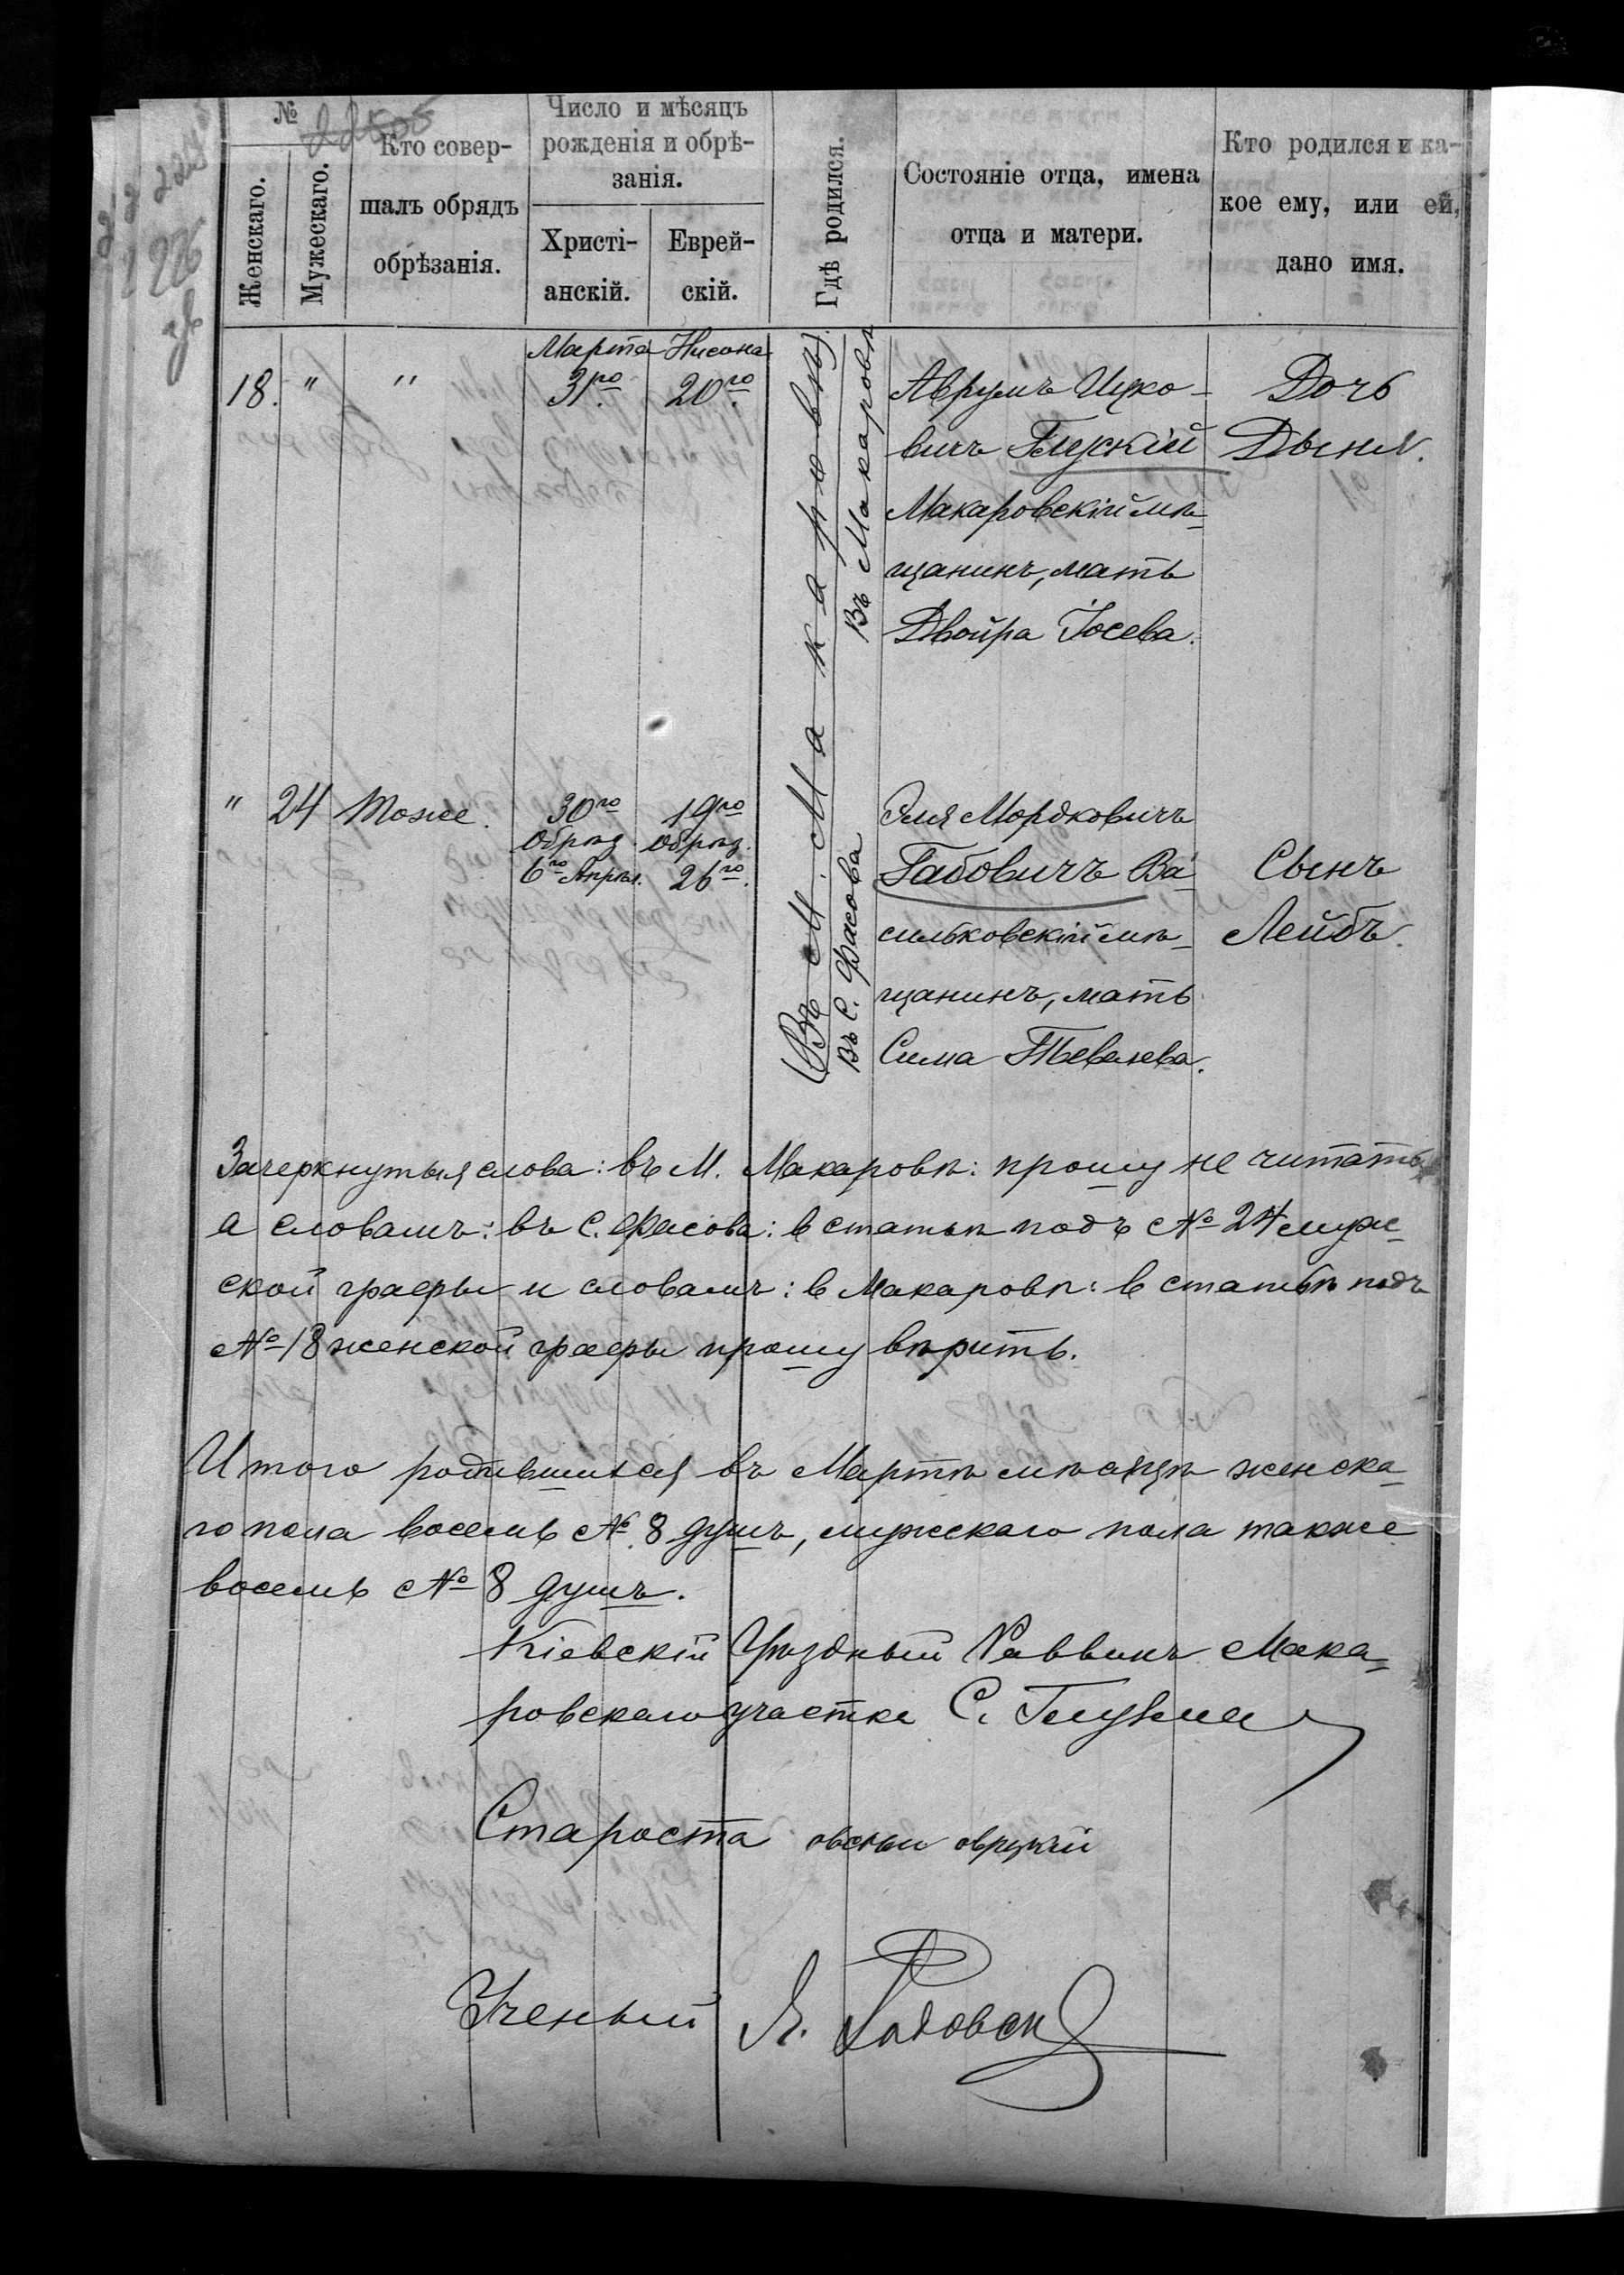 №
Женскаго.
Мужескаго.
Кто совер-
шалъ обрядъ
обрѣзанія.
Число и мѣсяцъ
рожденія и обрѣ-
занія.
Христі-
анскій.
Еврей-
скій.
Гдѣ родился.
Состояніе отца, имена
отца и матери.
Кто родился и ка-
кое ему, или ей,
дано имя.
226
Марта Нисона
18. " " 31го 20го
Въ М. Макаровѣ
Въ Макаровѣ
Аврумъ Ицко-
вичъ Глускій
Макаровскій мѣ-
щанинъ, мать
Двойра Іосева.
Дочь
Дыня.
" 24 Тоже. 30го 19го
Обрѣз. Обрѣз.
6го Апрѣл. 26го.
Въ С. Фасова
Эля Мордковичъ
Габовичъ Ва-
сильковскій мѣ-
щанинъ, мать
Сима Тевелева.
Сынъ
Лейбъ.
Зачеркнутыя слова: въ М. Макаровѣ: прошу не читать
а словамъ: въ С. Фасова: в статьѣ подъ № 24 муж-
ской графы и словамъ: в Макаровѣ: в статьѣ подъ
№ 18 женской графы прошу вѣрить.
Итого родившихся въ Мартѣ мѣсяцѣ женска-
го пола восемь № 8 душъ, мужескаго пола также
восемь № 8 душъ.
Кіевскій Уѣздный Раввинъ Мака-
ровскаго участка С.
Староста
Ученый